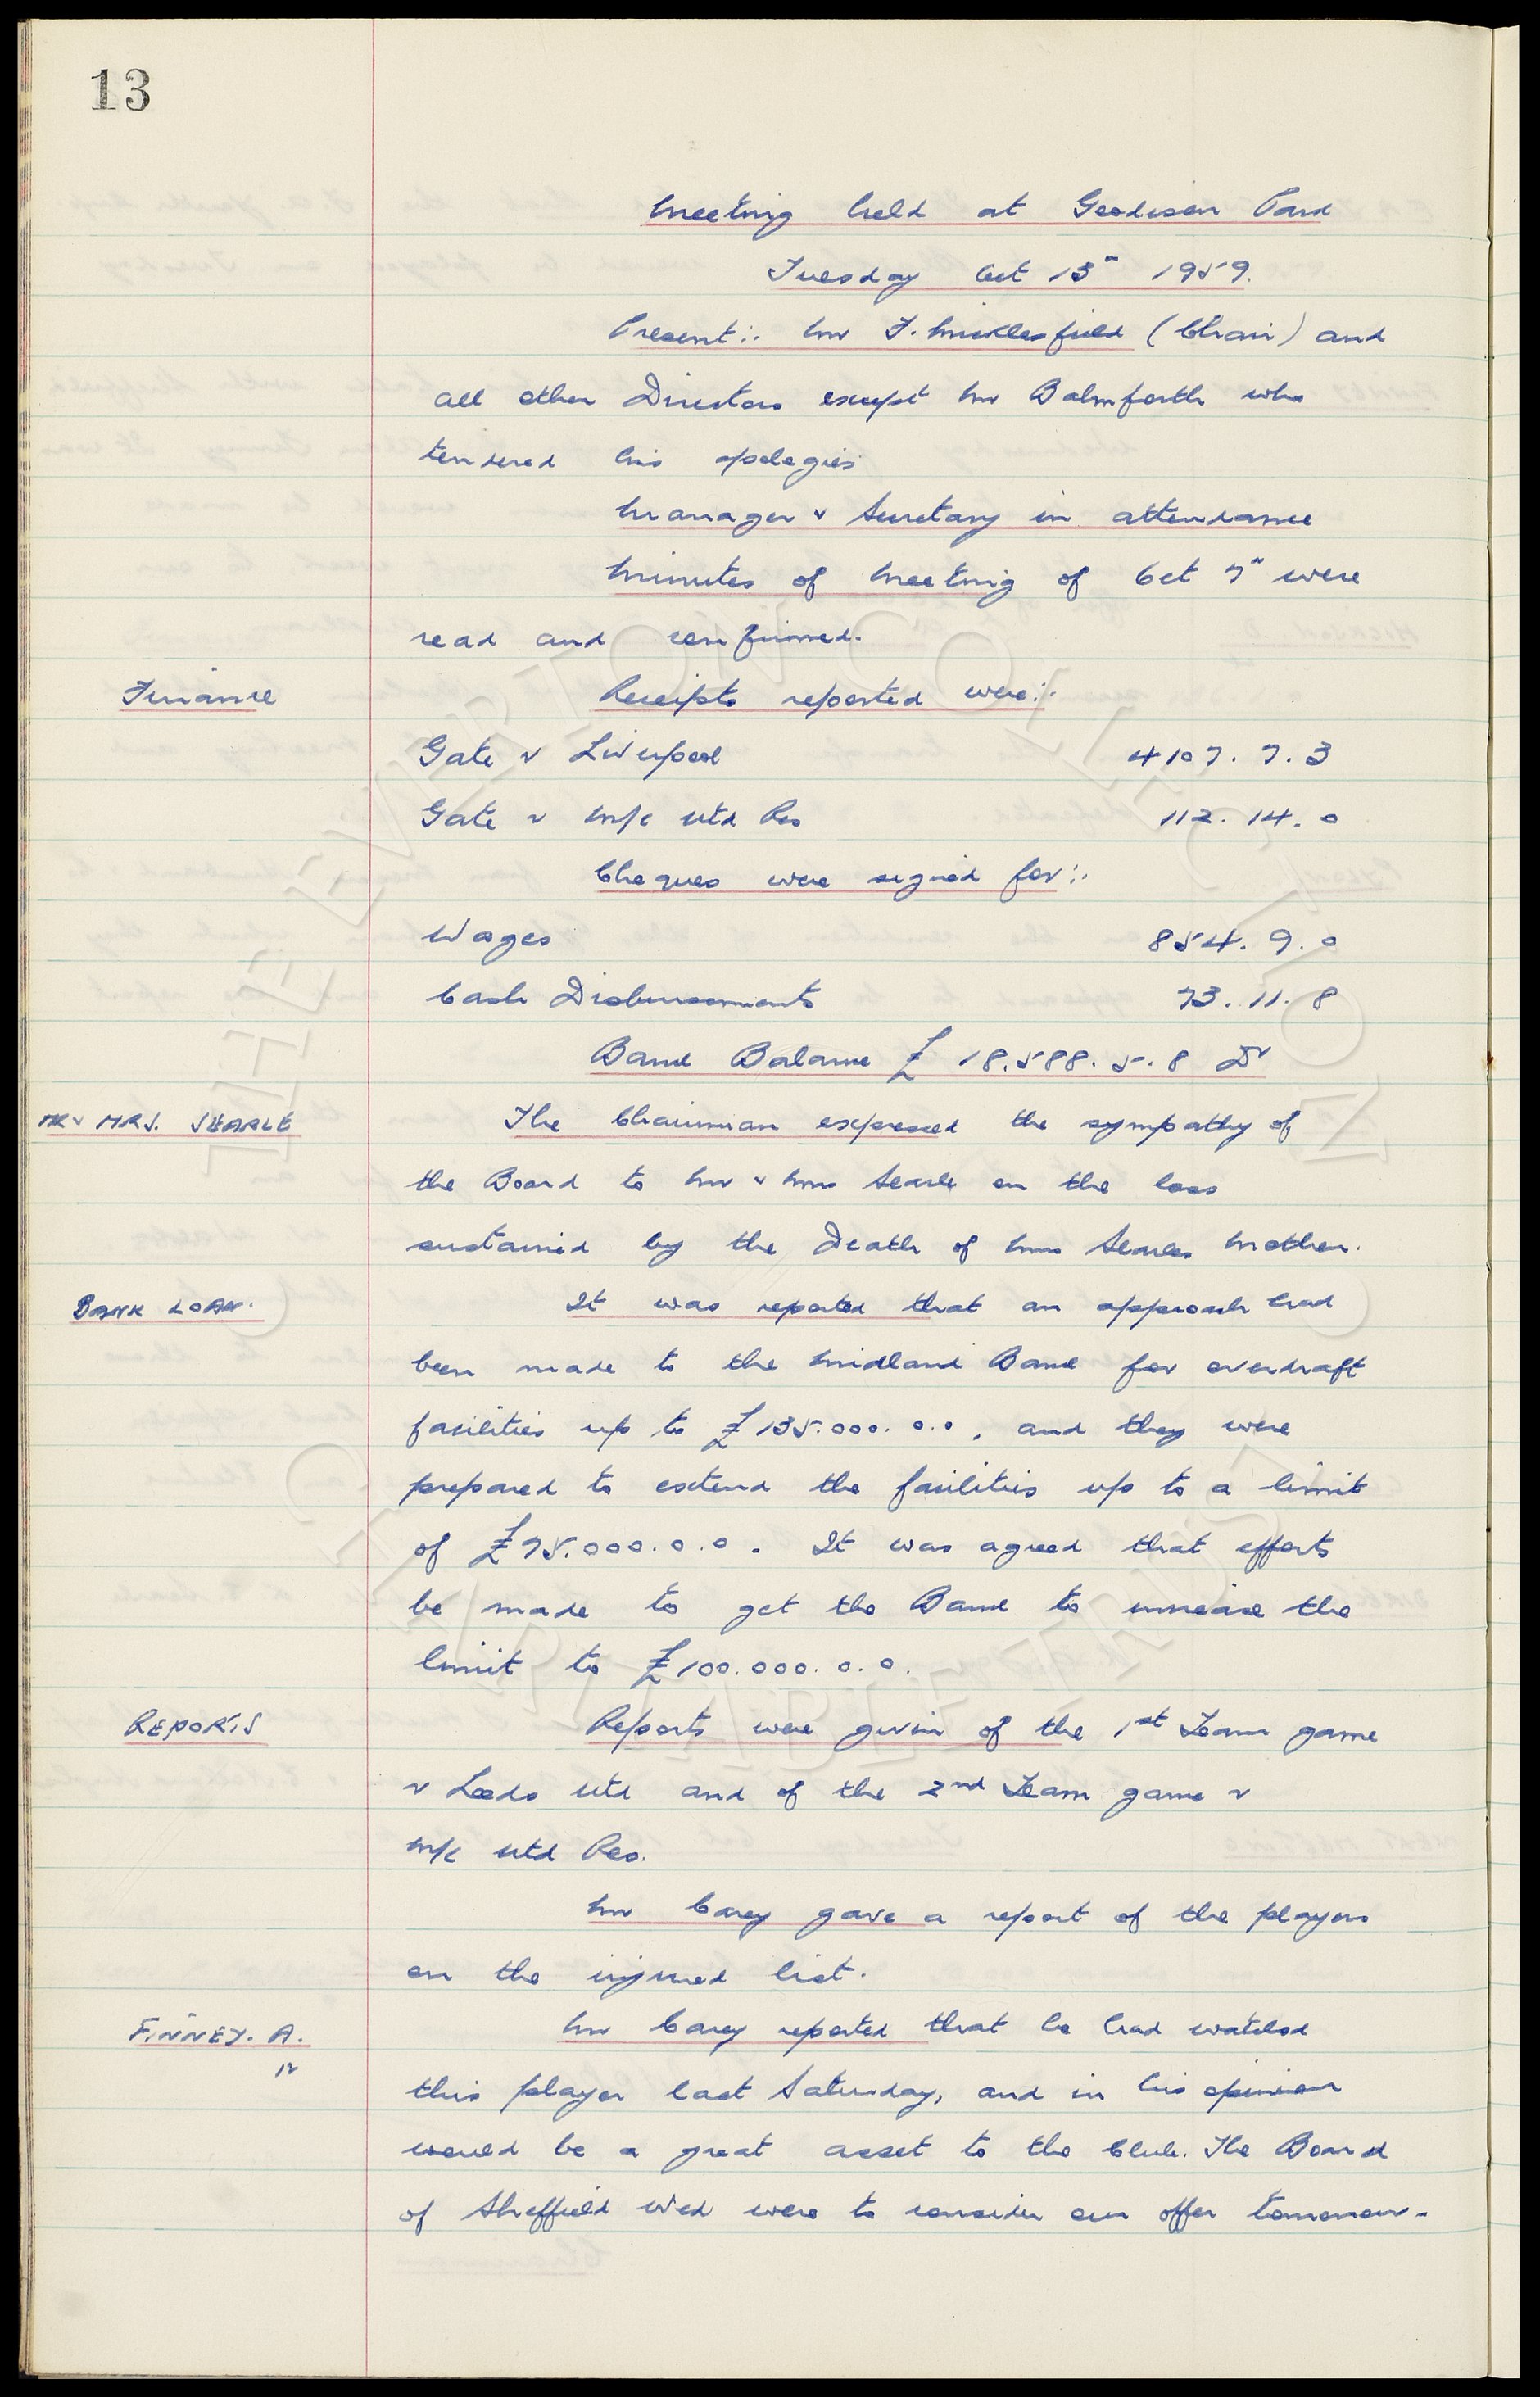 13
Meeting held at Goodison Park
Tuesday Oct 13" 1959.
Present:. Mr F. Micklesfield (Chair) and
all other Directors except Mr Balmforth who
tendered his apologies
Manager & Secretary in attendance
Minutes of Meeting of Oct 7" were
read and confirmed.
Finance Receipts reported were:.
Gate v Liverpool 4107. 7. 3
Gate v M/c Utd Res 112. 14. 0
Cheques were signed for:.
Wages 854. 9. 0
Cash Disbursements 73. 11. 8
Bank Balance £18,588. 5. 8 Dr
MR & MRS. SEARLE The Chairman expressed the sympathy of
the Board to Mr & Mrs Searle on the loss
sustained by the Death of Mrs Searles Mother.
BANK LOAN. It was reported that an approach had
been made to the Midland Bank for overdraft
facilities up to £135.000. 0.0, and they were
prepared to extend the facilities up to a limit
of £75.000.0.0. It was agreed that efforts
be made to get the Bank to increase the
limit to £100.000. 0. 0.
REPORTS Reports were given of the 1st Team game
v Leeds Utd and of the 2nd Team game v
M/c Utd Res.
Mr Carey gave a report of the players
on the injured list.
FINNEY. A. Mr Carey reported that he had watched
12
this player last Saturday, and in his opinion
would be a great asset to the Club. The Board
of Sheffield Wed were to consider our offer tomorrow.
THE EVERTON COLLECTION
CHARITABLE TRUST